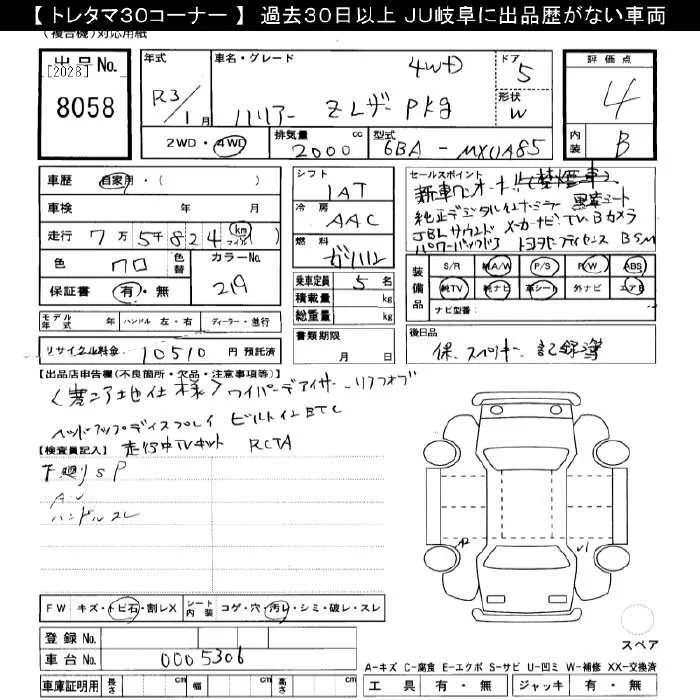 【 トレタマ30コーナー 】 過去30日以上 JU岐阜に出品歴がない車両
(複合機)対応用紙
出品No.
[2028]
8058
年式
R3/1月
車名・グレード
ハリアー Zレザーpkg 4WD
ドア
5
形状
W
評価点
4
内装
B
2WD・4WD
排気量
2000 cc
型式
6BA - MXUA85
車歴 自家用・( )
車検 年 月
走行 7万5千824 (km マイル)
色 クロ
色替
カラーNo.
219
保証書 有・無
シフト
IAT
冷房
AAC
燃料
ガソリン
乗車定員 5 名
積載量 kg
総重量 kg
書類期限
月 日
セールスポイント
新車ワンオーナー(禁煙車)
純正デジタルインナーミラー 黒革シート
JBLサウンド メーカーナビ TV Bカメラ
パワーバックドア トヨタセーフティセンス BSM
装備品
S/R A/W P/S P/W ABS
純TV 純ナビ 革シート 外ナビ エアB
ナビ型番:
モデル年式 年 ハンドル 左・右 ディーラー・並行
リサイクル料金 10510 円 預託済
後日品
保、スペアキー、記録簿
【出品店申告欄(不良箇所・欠品・注意事項等)】
〈寒冷地仕様〉ワイパーデアイサー、リアフォグ
ヘッドアップディスプレイ ビルトインETC
走行中TVキット RCTA
【検査員記入】
下廻りSP
AU
ハンドルスレ
A
U1
FW キズ・トビ石・割レX
シート内装 コゲ・穴・汚レ・シミ・破レ・スレ
登録 No.
車台 No. 0005306
車庫証明用 長さ cm 幅 cm 高さ cm
スペア
A-キズ C-腐食 E-エクボ S-サビ U-凹ミ W-補修 XX-交換済
工具 有・無 ジャッキ 有・無